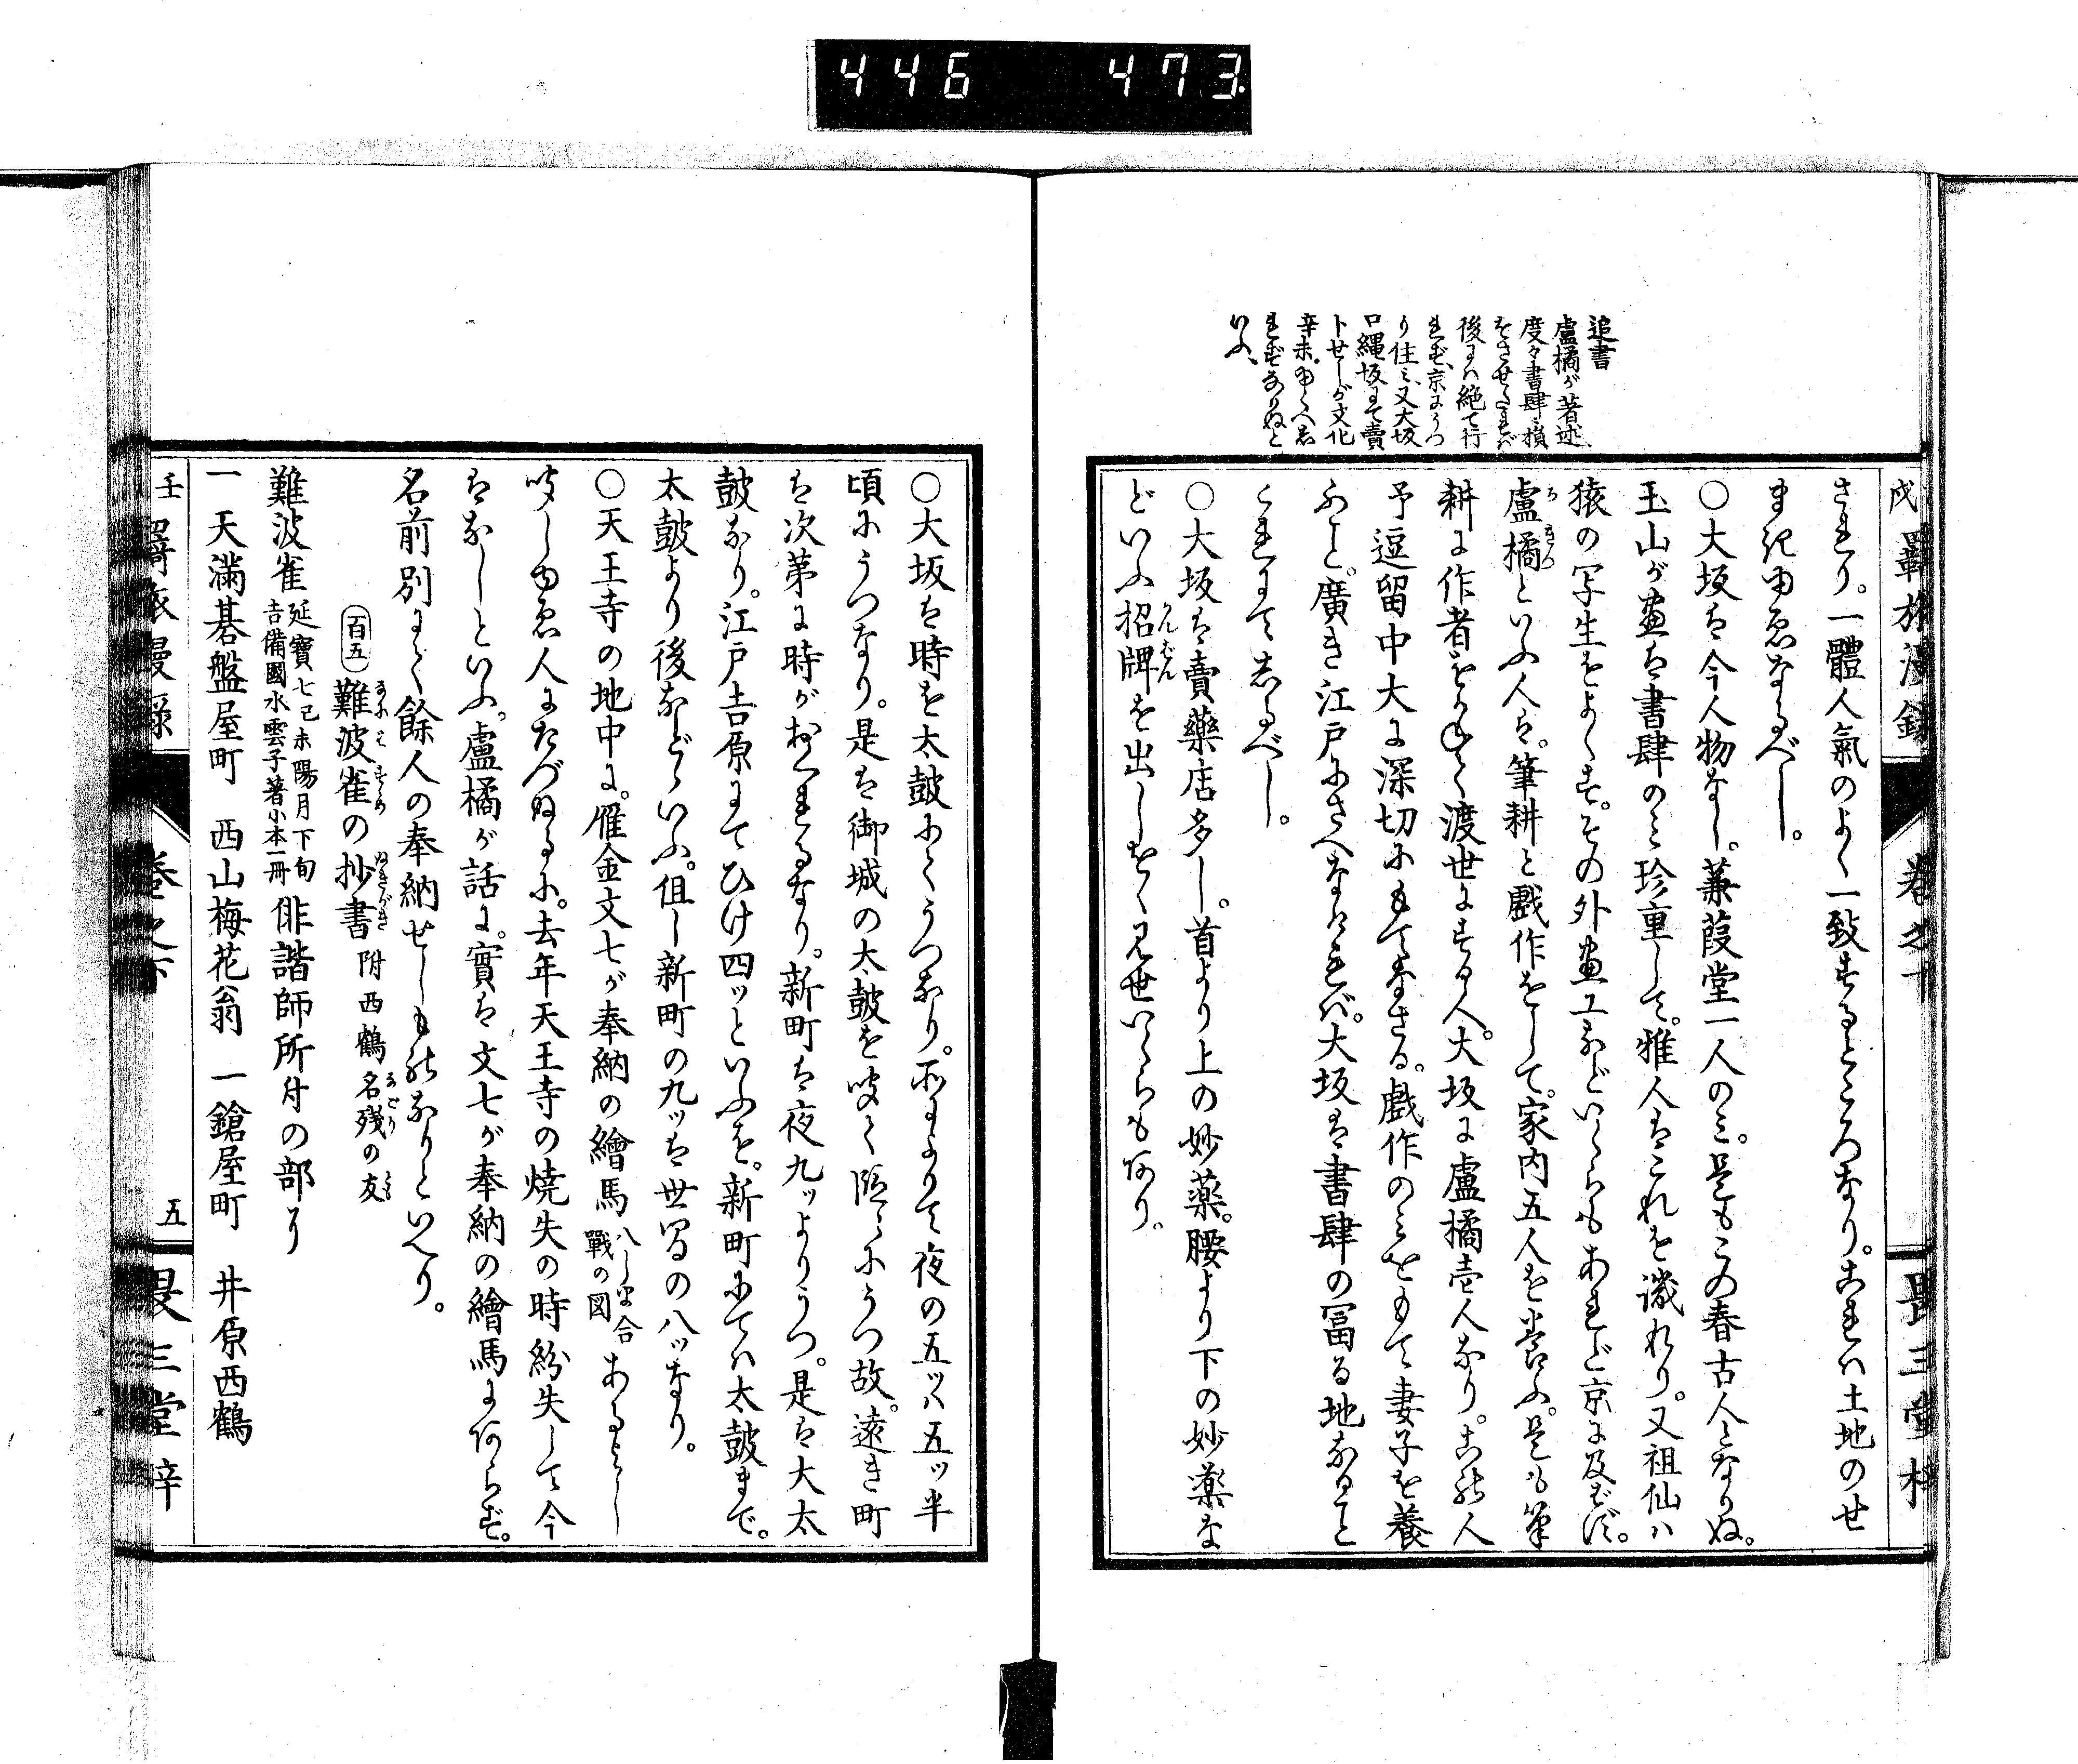 446 473
追書
盧橘が著述、
度々書肆に損
をさせたれば
後には絶て行
れず、京にうつ
り住み、又大坂
口縄坂にて賣
卜せしが文化
辛未
れずなりぬと
いふ、
羇旅漫録
巻之下
畏三堂梓
されり。一體人氣のよく一致するところなり。これハ土地のせ
まきゆゑなるべし。
○大坂は今人物なし。蒹葭堂一人のミ。是もこの春古人となりぬ。
玉山が畫は書肆のミ珍重して。雅人はこれを譏れり。又祖仙ハ
猿の写生をよくす。その外畫工などいくらもあれど京に及ばず。
盧橘といふ人ハ。筆耕と戲作をして。家内五人を養ふ。是も筆
耕に作者をかねて渡世にする人。大坂に盧橘壱人なり。この人
予逗留中大に深切にもてなさる。戲作のミをもて妻子を養
ふこと。廣き江戸にさへなけれバ。大坂は書肆の冨る地なること
これにてしるべし。
○大坂は賣藥店多し。首より上の妙藥。腰より下の妙藥な
どいふ招牌を出しをく見世いくらもあり。
○大坂は時を太鼓にてうつなり。所によりて夜の五ッハ五ッ半
頃にうつなり。是は御城の太鼓を聞て段々にうつ故。遠き町
は次第に時がおくれるなり。新町は夜九ッよりうつ。是は大太
鼓なり。江戸吉原にてひけ四ッといふを。新町にてハ太鼓まで。
太鼓より後などゝいふ。但し新町の九ッは世間の八ッなり。
○天王寺の地中に。雁金文七が奉納の繪馬 八しま合戰の図 あるよし
聞しゆゑ人にたづぬるに。去年天王寺の燒失の時紛失して今
はなしといふ。盧橘が話に。實は文七が奉納の繪馬にあらず。
名前別にて餘人の奉納せしものなりといへり。
百五 難波雀の抄書 附西鶴名殘の友
難波雀 延寶七己未陽月下旬 吉備國水雲子著小本一冊 俳諧師所付の部ニ
一 天滿碁盤屋町 西山梅花翁 一鎗屋町 井原西鶴
羇旅漫録
巻之下
五
畏三堂梓